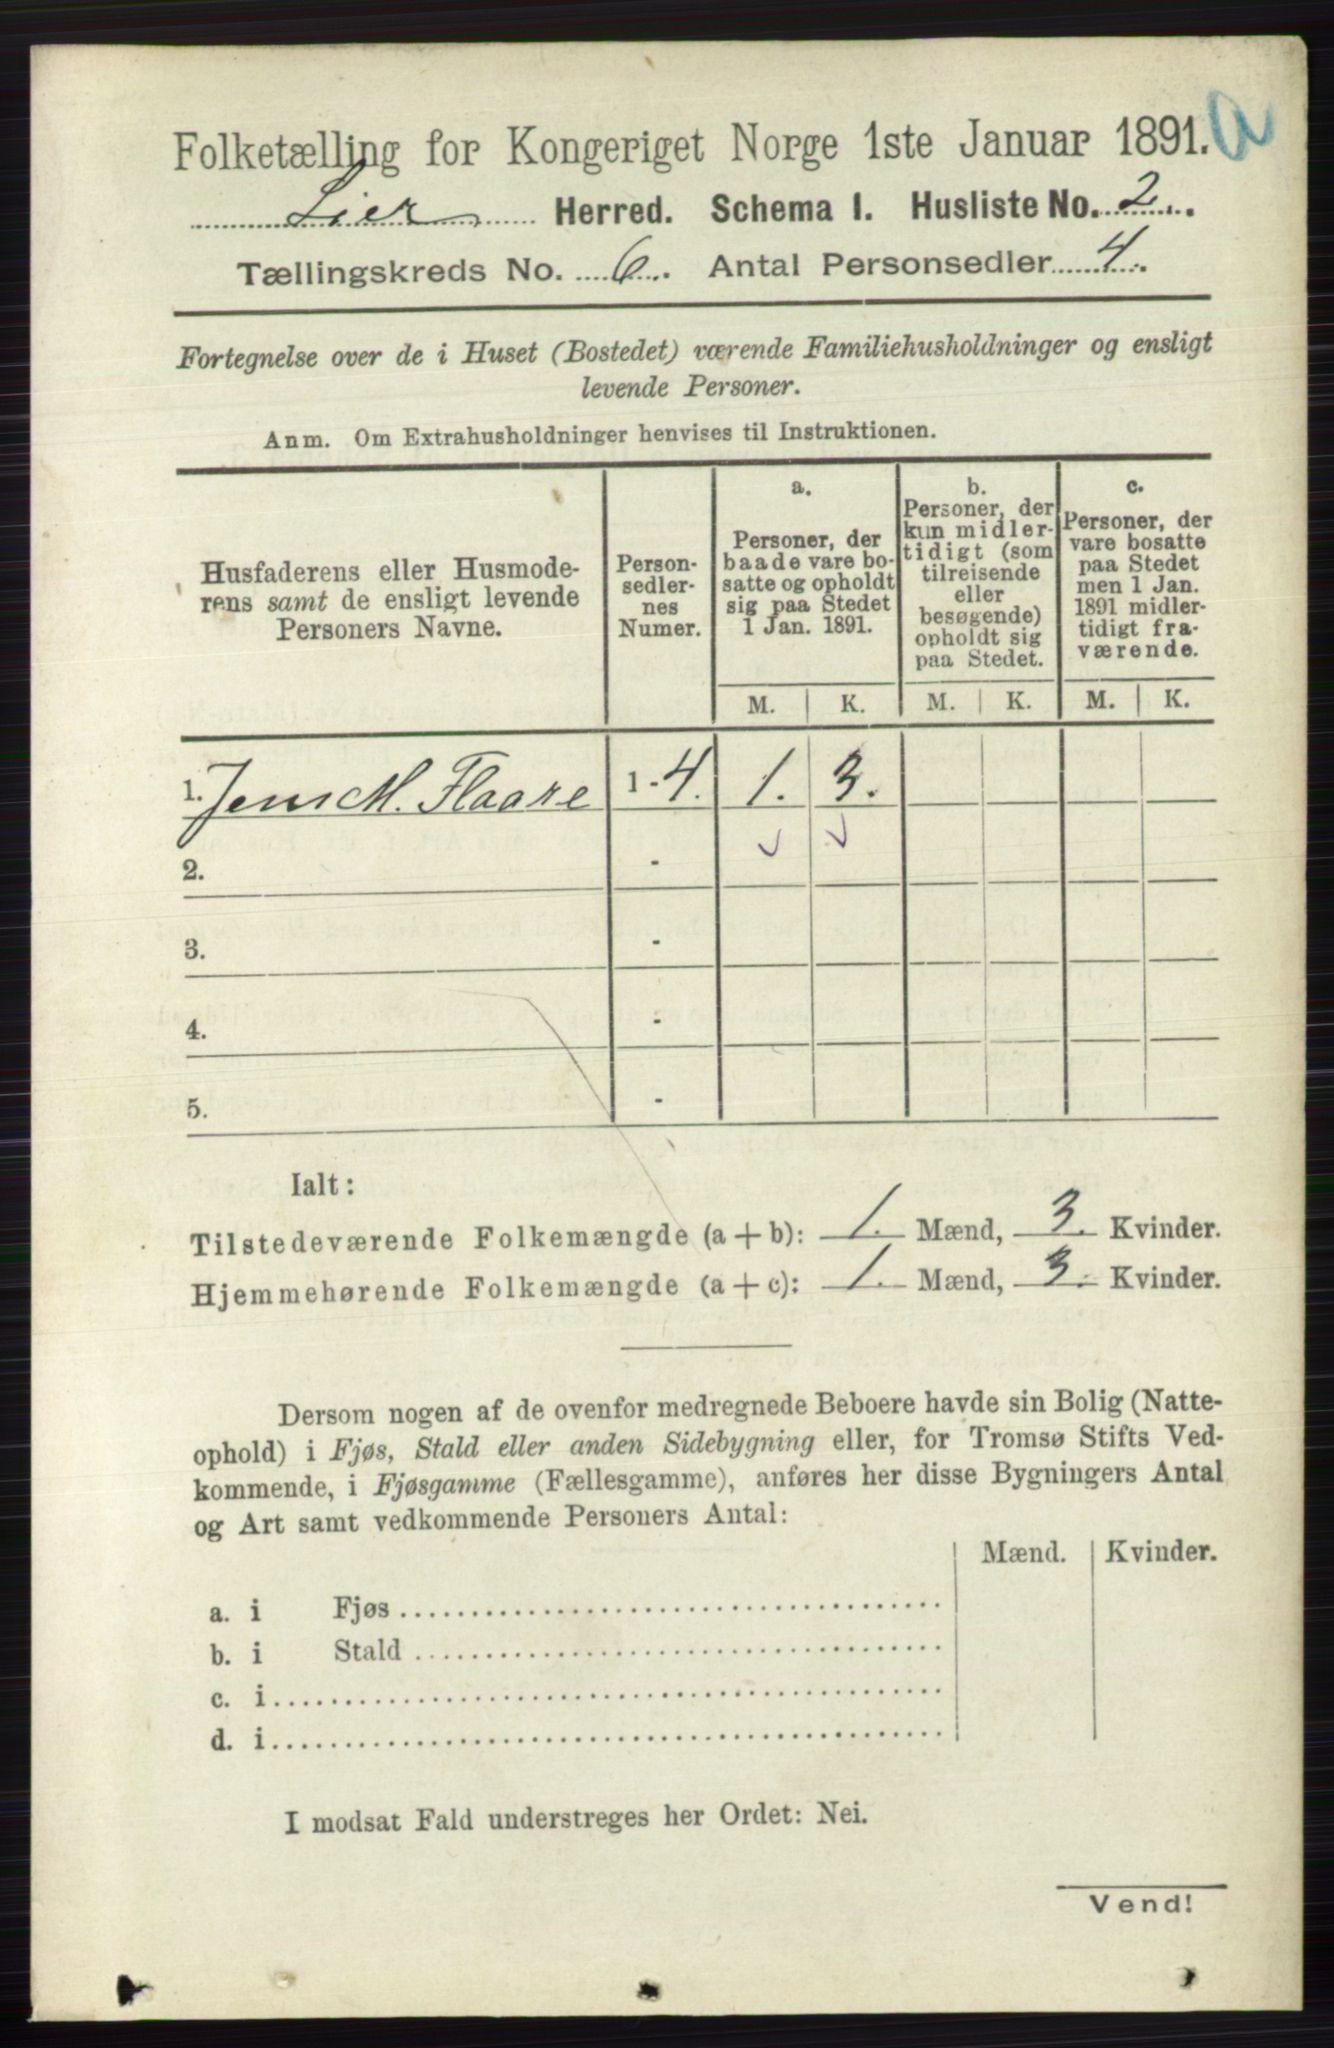 Folketælling for Kongeriget Norge 1ste Januar 1891. a
Lier Herred. Schema I. Husliste No. 2.
Tællingskreds No. 6. Antal Personsedler 4.
Fortegnelse over de i Huset (Bostedet) værende Familiehusholdninger og ensligt
levende Personer.
Anm. Om Extrahusholdninger henvises til Instruktionen.
Husfaderens eller Husmode-
rens samt de ensligt levende
Personers Navne.
Person-
sedler-
nes
Numer.
a.
Personer, der
baade vare bo-
satte og opholdt
sig paa Stedet
1 Jan. 1891.
b.
Personer, der
kun midler-
tidigt (som
tilreisende
eller
besøgende)
opholdt sig
paa Stedet.
c.
Personer, der
vare bosatte
paa Stedet
men 1 Jan.
1891 midler-
tidigt fra-
værende.
M. K. M. K. M. K.
1. Jens M. Flaare 1 - 4. 1. 3.
2. -
3. -
4. -
5. -
Ialt:
Tilstedeværende Folkemængde (a + b): 1. Mænd, 3. Kvinder.
Hjemmehørende Folkemængde (a + c): 1. Mænd, 3. Kvinder.
Dersom nogen af de ovenfor medregnede Beboere havde sin Bolig (Natte-
ophold) i Fjøs, Stald eller anden Sidebygning eller, for Tromsø Stifts Ved-
kommende, i Fjøsgamme (Fællesgamme), anføres her disse Bygningers Antal
og Art samt vedkommende Personers Antal:
Mænd. Kvinder.
a. i Fjøs
b. i Stald
c. i
d. i
I modsat Fald understreges her Ordet: Nei.
Vend!